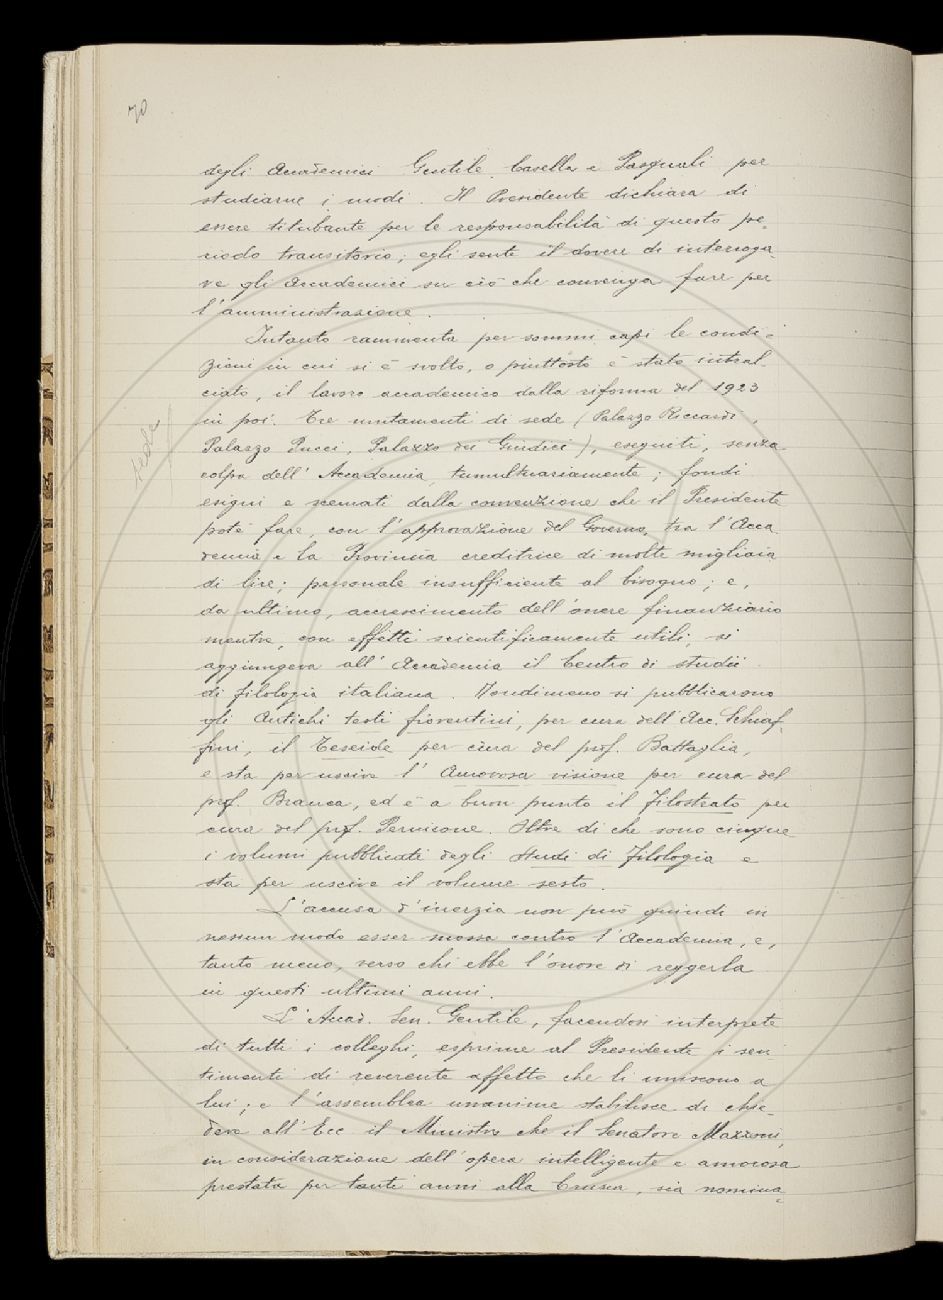 70
degli Accademici Gentile, Casella e Pasquali per
studiarne i modi. Il Presidente dichiara di
essere titubante per le responsabilità di questo pe-
riodo transitorio; egli sente il dovere di interroga-
re gli Accademici su ciò che convenga fare per
l'amministrazione.
Intanto rammenta per sommi capi le condi-
zioni in cui si è svolto, o piuttosto è stato intral-
ciato, il lavoro accademico dalla riforma del 1923
in poi. Tre mutamenti di sede (Palazzo Riccardi,
sede
Palazzo Pucci, Palazzo dei Giudici), eseguiti, senza
colpa dell'Accademia, tumultuariamente; fondi
esigui e scemati dalla convenzione che il Presidente
poté fare, con l'approvazione del Governo, tra l'Acca
demia e la Provincia creditrice di molte migliaia
di lire; personale insufficiente al bisogno; e,
da ultimo, accrescimento dell'onere finanziario
mentre, con effetti scientificamente utili, si
aggiungeva all'Accademia il Centro di studii
di filologia italiana. Nondimeno si pubblicarono
gli Antichi testi fiorentini, per cura dell'Acc. Schiaf-
fini, il Teseide per cura del prof. Battaglia,
e sta per uscire l'Amorosa visione per cura del
prof. Branca, ed è a buon punto il Filostrato per
cura del prof. Pernicone. Oltre di che sono cinque
i volumi pubblicati degli Studi di Filologia e
sta per uscire il volume sesto.
L'accusa d'inerzia non può quindi in
nessun modo esser mossa contro l'Accademia, e,
tanto meno, verso chi ebbe l'onore di reggerla
in questi ultimi anni.
L'Accad. Sen. Gentile, facendosi interprete
di tutti i colleghi, esprime al Presidente i sen
timenti di reverente affetto che li uniscono a
lui; e l'assemblea unanime stabilisce di chie-
dere all'Ecc il Ministro che il Senatore Mazzoni,
in considerazione dell'opera intelligente e amorosa
prestata per tanti anni alla Crusca, sia nomina-